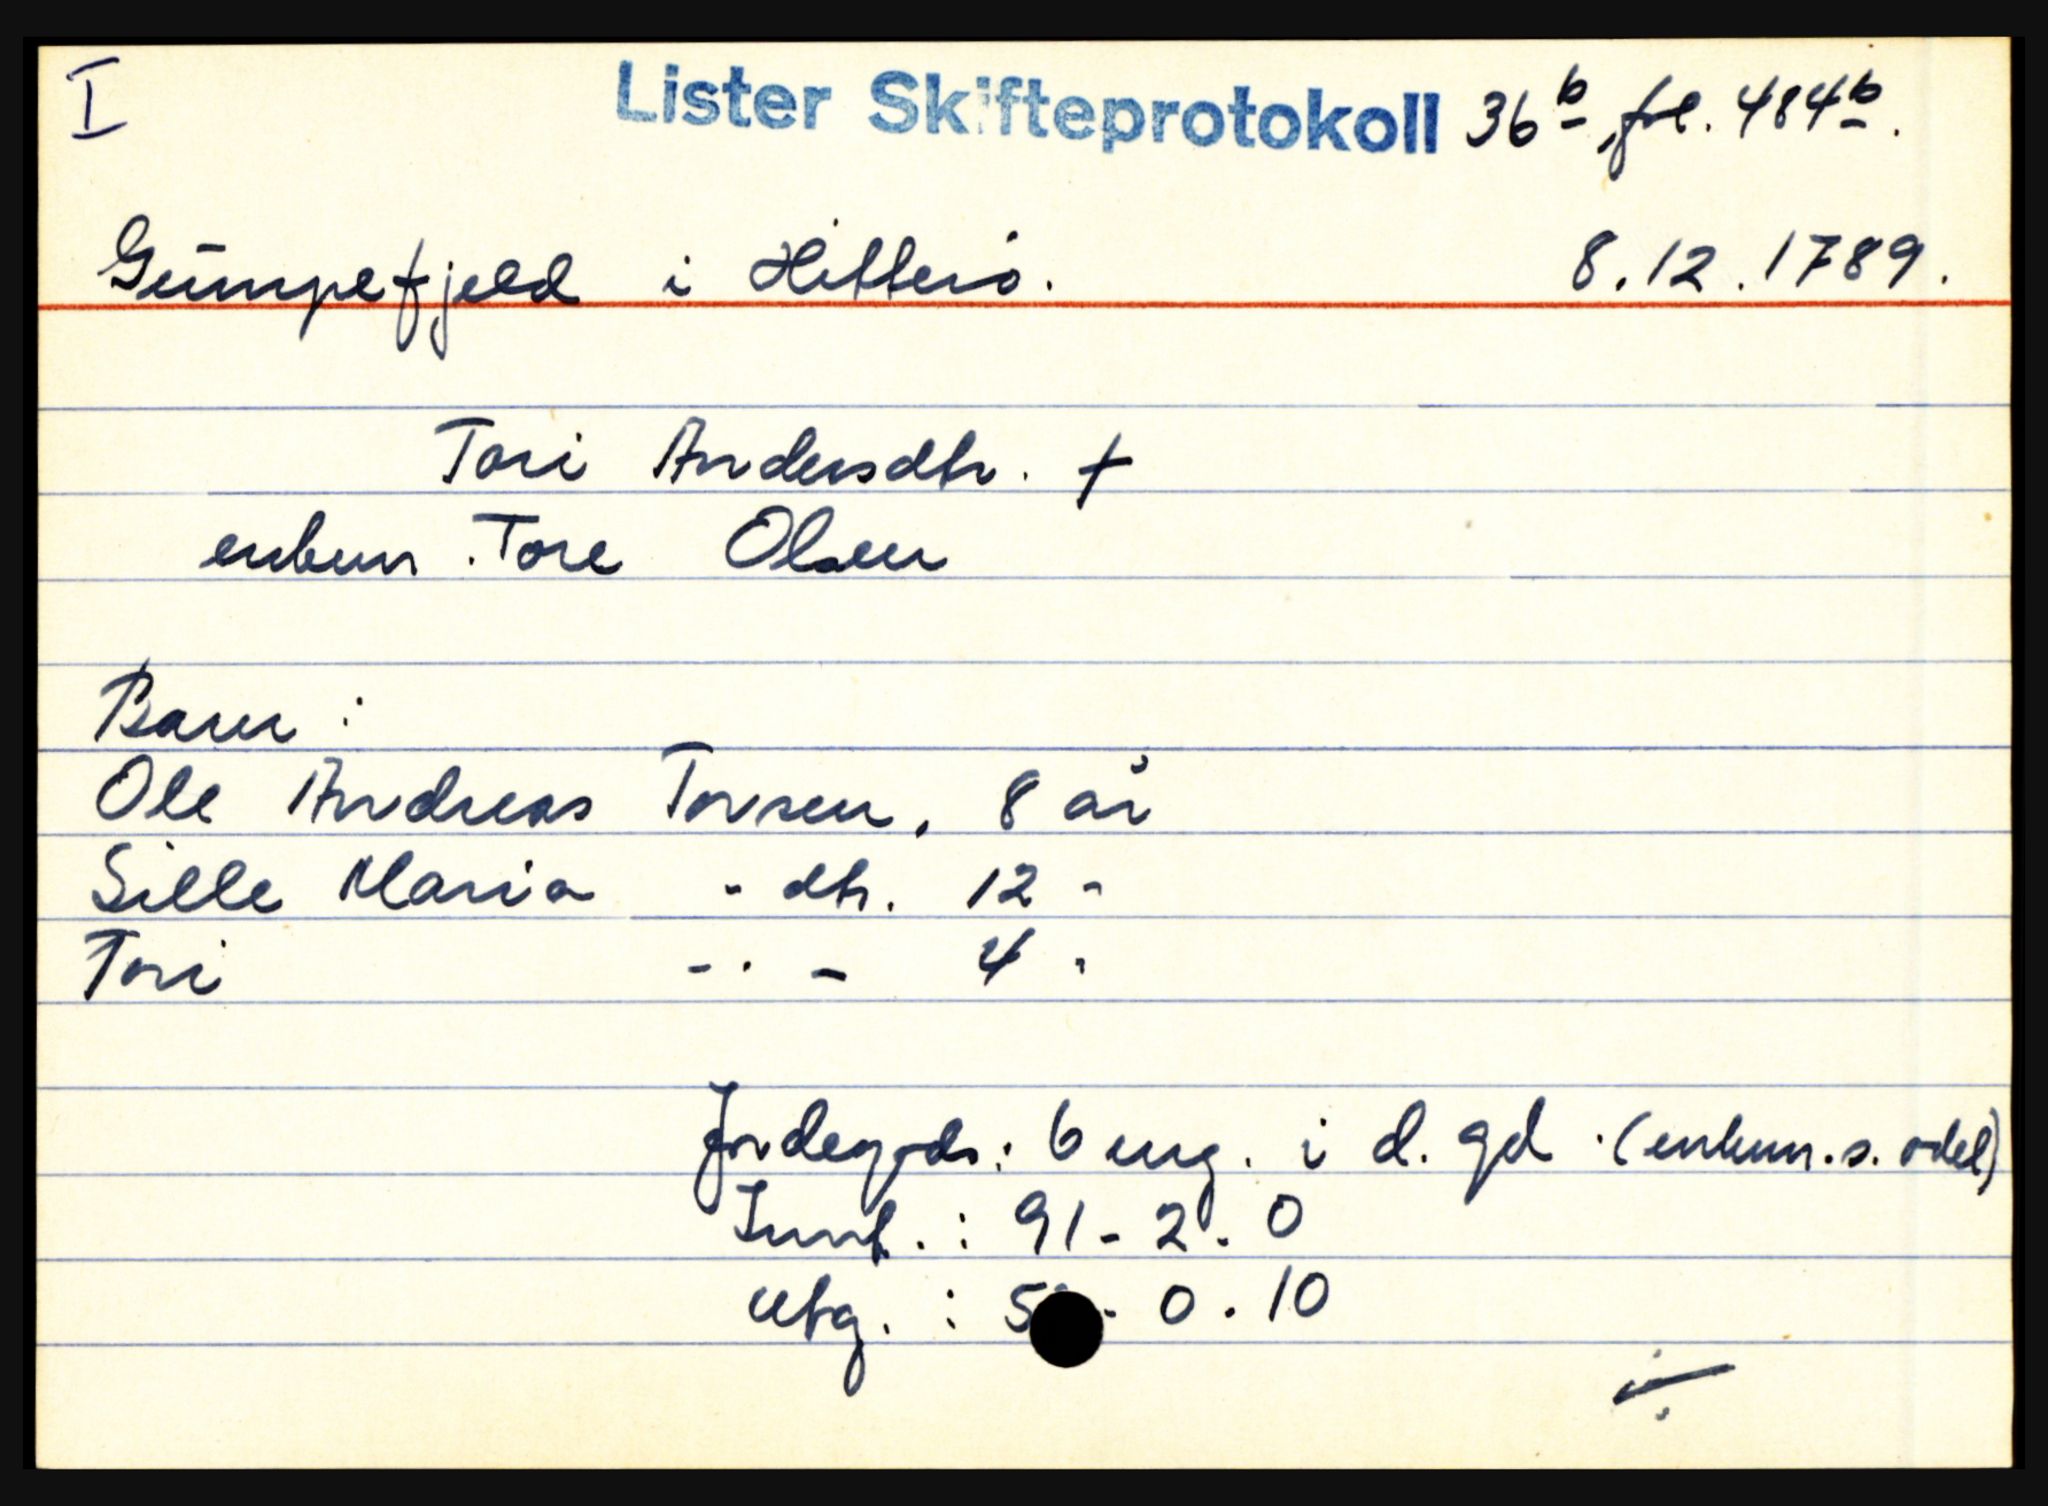 I
Lister Skifteprotokoll 36b, fol. 484b.
Gumpefjeld i Hitterö. 8.12.1789.
Tori Andersdtr. †
enkem. Tore Olsen
Barn :
Ole Andreas Torsen, 8 år
Sille Maria - dtr. 12 -
Tori - - - 4 "
Jordegods: 6 eng. i d. gd. (enkem.s. odel)
Innt. : 91 - 2 - 0
Utg. : - 0 - 10